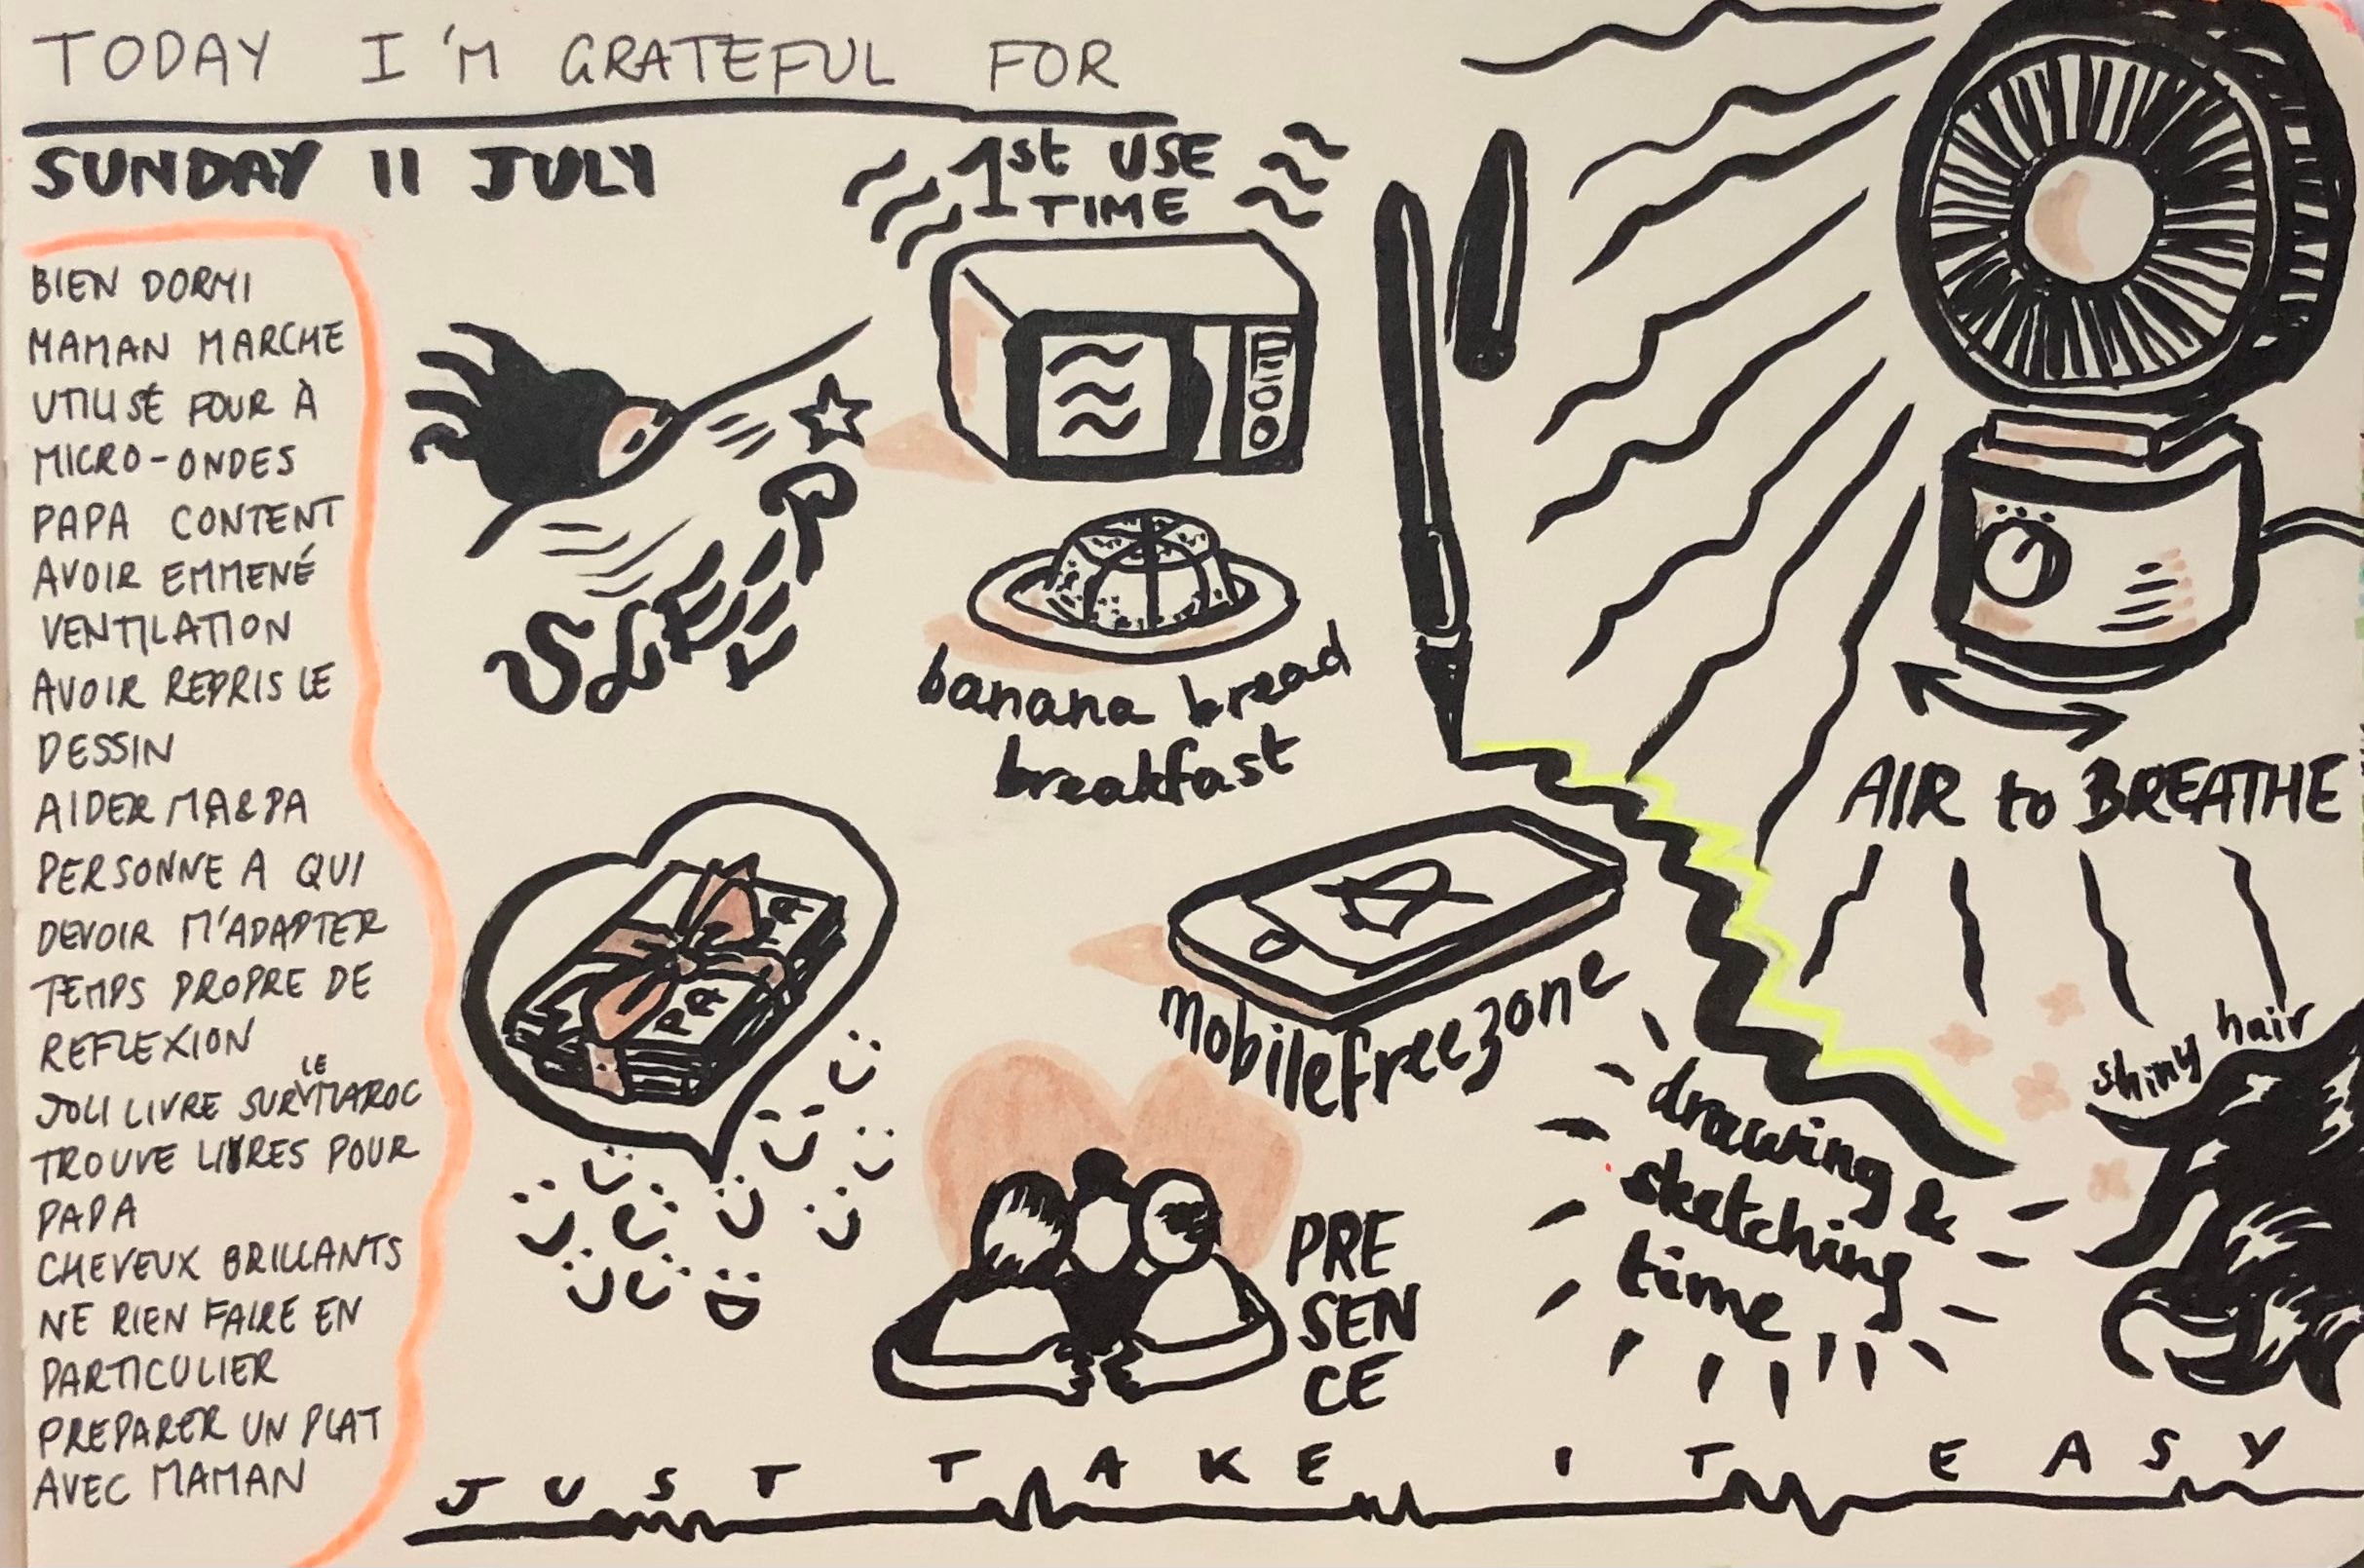 TODAY I'M GRATEFUL FOR
SUNDAY 11 JULY
BIEN DORMI
MAMAN MARCHE
UTILISÉ FOUR À
MICRO-ONDES
PAPA CONTENT
AVOIR EMMENÉ
VENTILATION
AVOIR REPRIS LE
DESSIN
AIDER MA&PA
PERSONNE A QUI
DEVOIR M'ADAPTER
TEMPS PROPRE DE
REFLEXION
JOLI LIVRE SUR LE MAROC
TROUVE LIVRES POUR
PAPA
CHEVEUX BRILLANTS
NE RIEN FAIRE EN
PARTICULIER
PREPARER UN PLAT
AVEC MAMAN
1st USE
TIME
SLEEP
banana bread
breakfast
AIR to BREATHE
PA
PA
mobilefreezone
shiny hair
drawing &
sketching
time
PRE
SEN
CE
JUST TAKE IT EASY